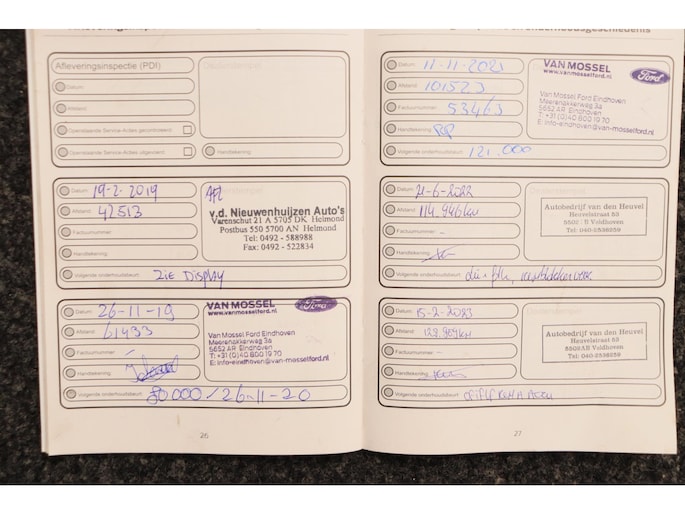 Afleveringsinspectie (PDI)
Datum:
Afstand:
Openstaande Service-Acties gecontroleerd:
Openstaande Service-Acties uitgevoerd:
Handtekening:
Datum: 19-2-2019
Afstand: 42513
Factuurnummer:
Handtekening:
Volgende onderhoudsbeurt: Zie Display
v.d. Nieuwenhuijzen Auto's
Varenschut 21 A 5705 DK Helmond
Postbus 550 5700 AN Helmond
Tel: 0492 - 588988
Fax: 0492 - 522834
Datum: 26-11-19
Afstand: 61433
Factuurnummer: -
Handtekening:
Volgende onderhoudsbeurt: 80000 / 26-11-20
VAN MOSSEL
www.vanmosselford.nl
Ford
Van Mossel Ford Eindhoven
Meerenakkerweg 3a
5652 AR Eindhoven
T: +31 (0)40 800 19 70
E: info-eindhoven@van-mossel.nl
26
Datum: 11-11-2021
Afstand: 101523
Factuurnummer: 53463
Handtekening:
Volgende onderhoudsbeurt: 121.000
VAN MOSSEL
www.vanmosselford.nl
Ford
Van Mossel Ford Eindhoven
Meerenakkerweg 3a
5652 AR Eindhoven
T: +31 (0)40 800 19 70
E: info-eindhoven@van-mossel.nl
Datum: 21-6-2022
Afstand: 114.946 km
Factuurnummer: -
Handtekening:
Volgende onderhoudsbeurt:
Autobedrijf van den Heuvel
Heuvelstraat 53
Veldhoven
Tel: 040-2536259
Datum: 15-2-2023
Afstand: km
Factuurnummer: -
Handtekening:
Volgende onderhoudsbeurt:
Autobedrijf van den Heuvel
Heuvelstraat 53
Veldhoven
Tel: 040-2536259
27